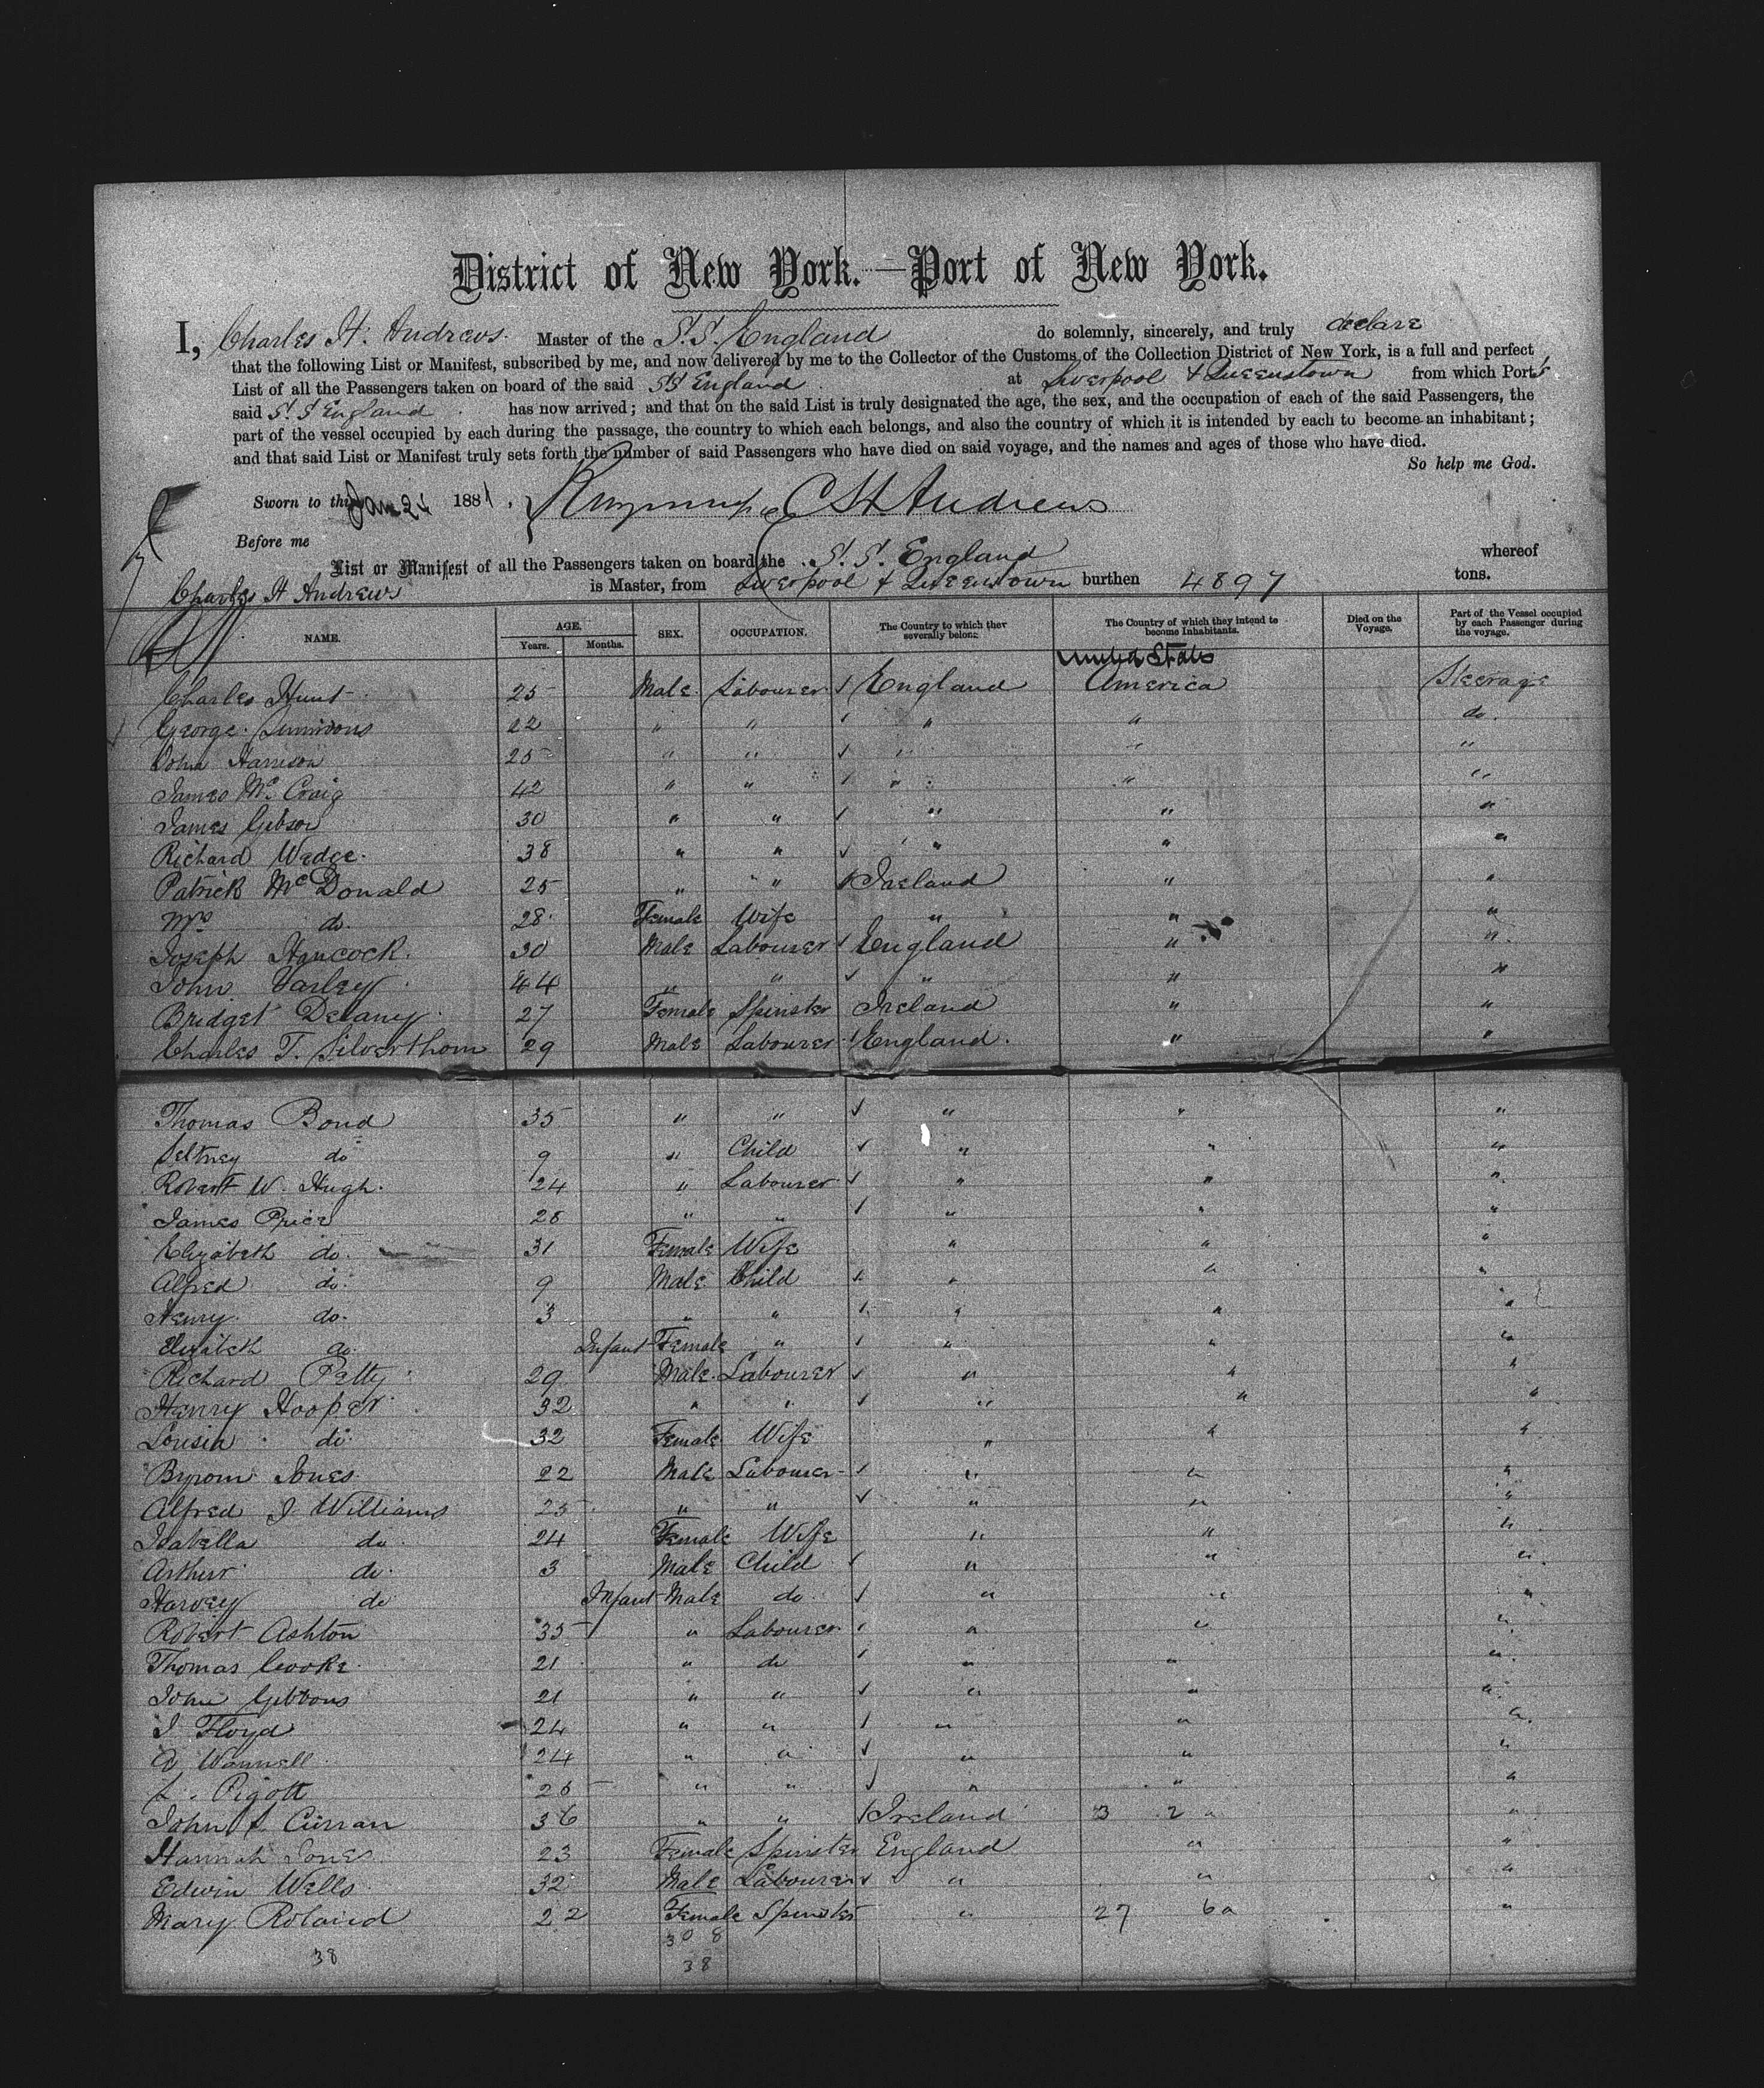 District of New York.—Port of New York.
I, Charles H. Andrews. Master of the S.S. England do solemnly, sincerely, and truly declare
that the following List or Manifest, subscribed by me, and now delivered by me to the Collector of the Customs of the Collection District of New York, is a full and perfect
List of all the Passengers taken on board of the said SS England at Liverpool & Queenstown from which Ports
said S.S England has now arrived; and that on the said List is truly designated the age, the sex, and the occupation of each of the said Passengers, the
part of the vessel occupied by each during the passage, the country to which each belongs, and also the country of which it is intended by each to become an inhabitant;
and that said List or Manifest truly sets forth the number of said Passengers who have died on said voyage, and the names and ages of those who have died.
So help me God.
Sworn to this Jan 1881. C H Andrews
Before me
List or Manifest of all the Passengers taken on board the S.S. England whereof
Charles H Andrews is Master, from Liverpool & Queenstown burthen 4897 tons.
NAME. AGE. Years. Months. SEX. OCCUPATION. The Country to which they severally belong. The Country of which they intend to become Inhabitants. Died on the Voyage. Part of the Vessel occupied by each Passenger during the voyage.
United States
Charles Hunt 25 Male Labourer England America Steerage
George Simmons 22 " " " " do.
John Harrison 25 " " " " "
James McCraig 42 " " " " "
James Gibson 30 " " " " "
Richard Wedge 38 " " " " "
Patrick McDonald 25 " " Ireland " "
Mrs do. 28 Female Wife " " "
Joseph Hancock 30 Male Labourer England " "
John Varley 44 " " " " "
Bridget Delany 27 Female Spinster Ireland " "
Charles T. Silverthorn 29 Male Labourer England " "
Thomas Bond 35 " " " " "
do 9 " Child " " "
Robert W. Hugh 24 " Labourer " " "
James Price 28 " " " " "
Elizabeth do. 31 Female Wife " " "
Alfred do. 9 Male Child " " "
Henry do. 3 " " " " "
Elizabeth do. Infant Female " " " "
Richard Petty 29 Male Labourer " " "
Henry Hooper 32 " " " " "
Louisa do 32 Female Wife " " "
Byrom Jones 22 Male Labourer " " "
Alfred J Williams 25 " " " " "
Isabella do 24 Female Wife " " "
Arthur do. 3 Male Child " " "
Harvey do Infant Male do " " "
Robert Ashton 35 " Labourer " " "
Thomas Cooke 21 " do " " "
John Gibbons 21 " " " " "
J Floyd 24 " " " " "
24 " " " " "
Pigott 26 " " " " "
John Curran 36 " " Ireland 3 2 " "
Hannah Jones 23 Female Spinster England " "
Edwin Wells 32 Male Labourer " " "
Mary Roland 22 Female Spinster " 27 6 a "
30 8
38 38